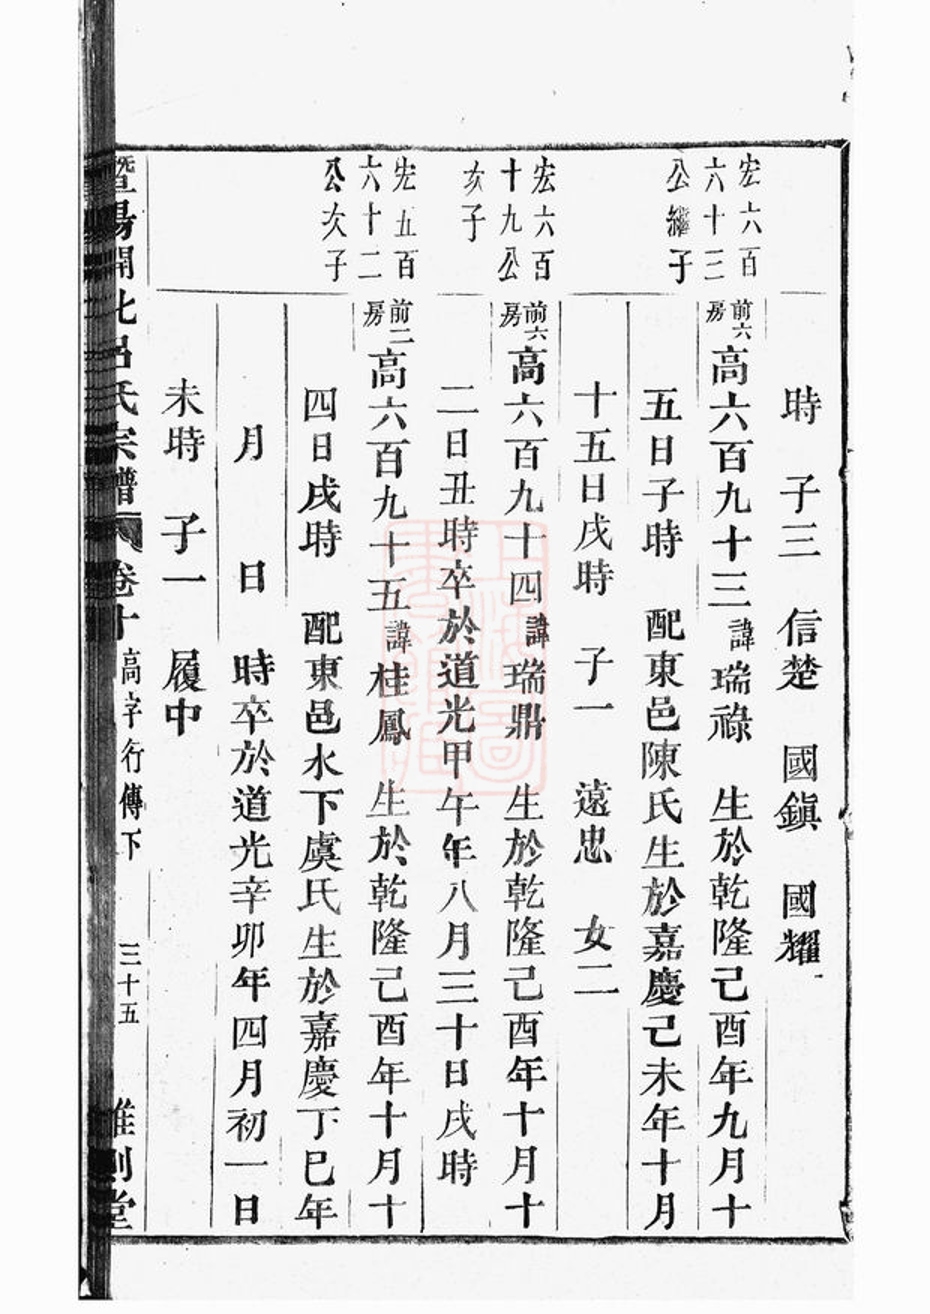 時　子三　信楚　國鎮　國耀
宏六百
六十三
公繼子
前六
房
高六百九十三諱瑞祿　生於乾隆己酉年九月十
五日子時　配東邑陳氏生於嘉慶己未年十月
十五日戌時　子一　遠忠　女二
宏六百
十九公
次子
前六
房
高六百九十四諱瑞鼎　生於乾隆己酉年十月十
二日丑時卒於道光甲午年八月三十日戌時
宏五百
六十二
公次子
前二
房
高六百九十五諱桂鳳　生於乾隆己酉年十月十
四日戌時　配東邑水下虞氏生於嘉慶丁巳年
月　日　時卒於道光辛卯年四月初一日
未時　子一　履中
暨陽開化呂氏宗譜　卷十　高字行傳下　三十五　惟則堂
上海圖
書館藏